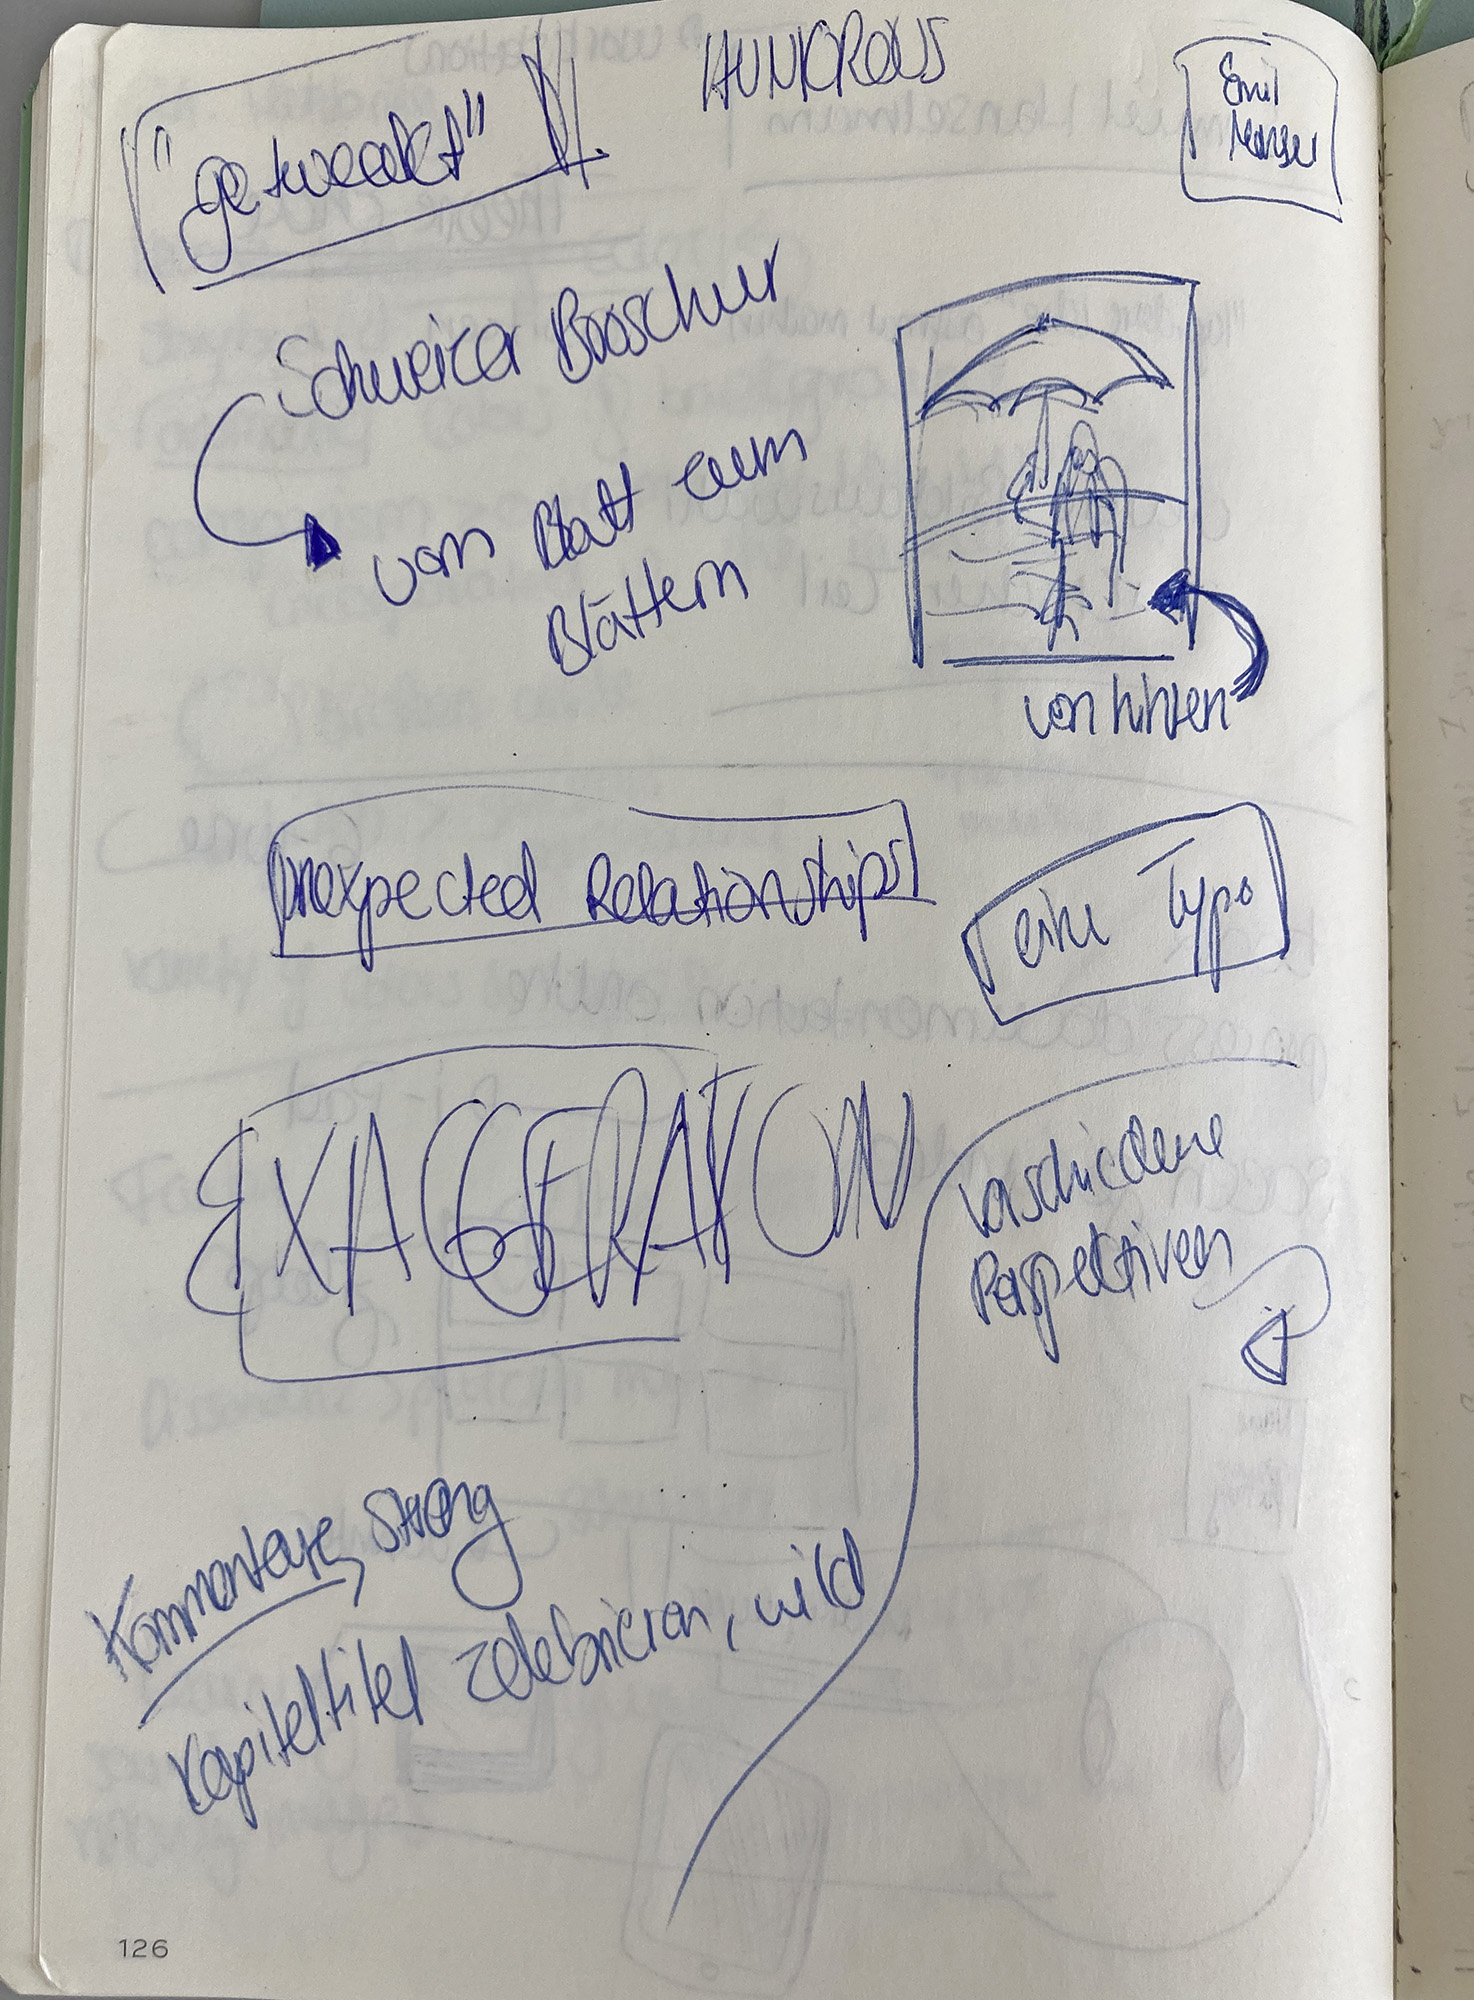 "getweakt"
HUMOROUS
Emil
Manser
Schweizer Broschur
vom Blatt zum
Blättern
von hinten
unexpected Relationships
eine Typo
EXAGGERATION
verschiedene
Perspektiven
Kommentare, streng
Kapiteltitel zelebrieren, wild
126